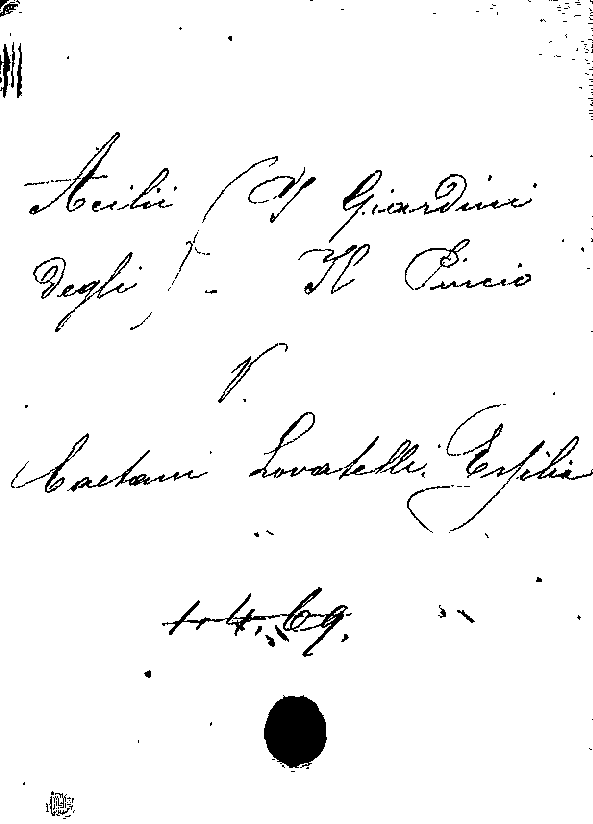 Acilii ( I Giardini
Degli ) - Il Pincio
V.
Caetani Lovatelli. Ersilia
1.4.69.